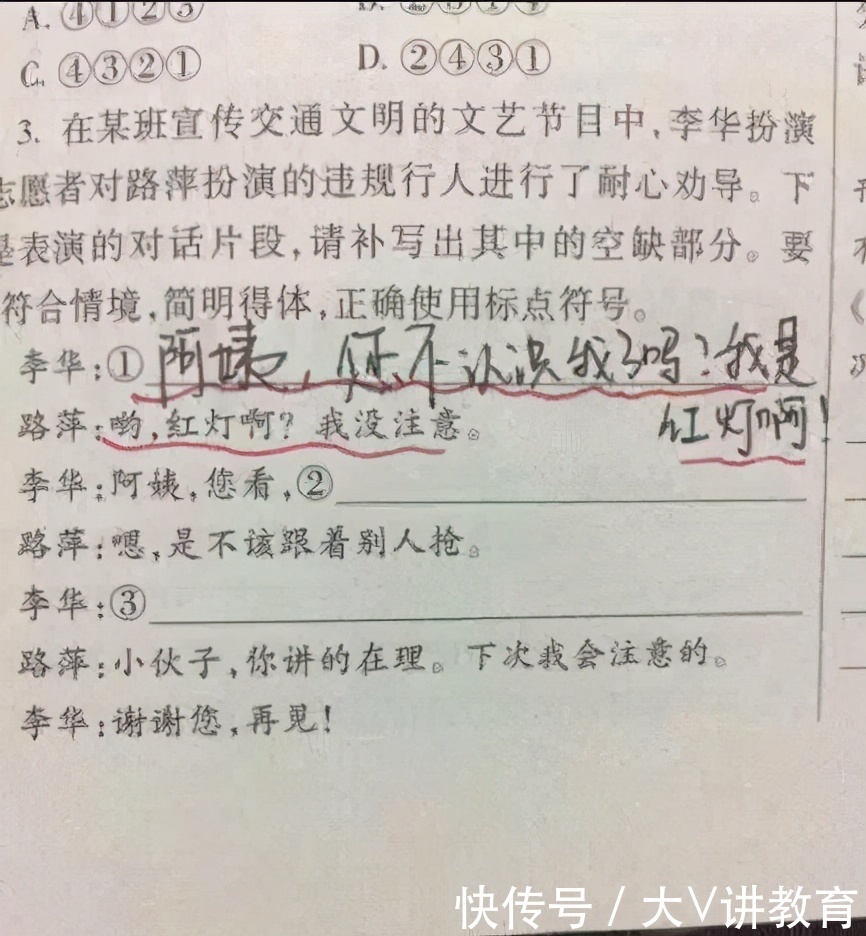 A. ④①②③
C. ④③②①
D. ②④③①
3. 在某班宣传交通文明的文艺节目中,李华扮演
志愿者对路萍扮演的违规行人进行了耐心劝导。下
是表演的对话片段,请补写出其中的空缺部分。要
符合情境,简明得体,正确使用标点符号。
李华:①阿姨,您不认识我了吗?我是
红灯啊!
路萍:哟,红灯啊?我没注意。
李华:阿姨,您看,②
路萍:嗯,是不该跟着别人抢。
李华:③
路萍:小伙子,你讲的在理。下次我会注意的。
李华:谢谢您,再见!
快传号 / 大V讲教育